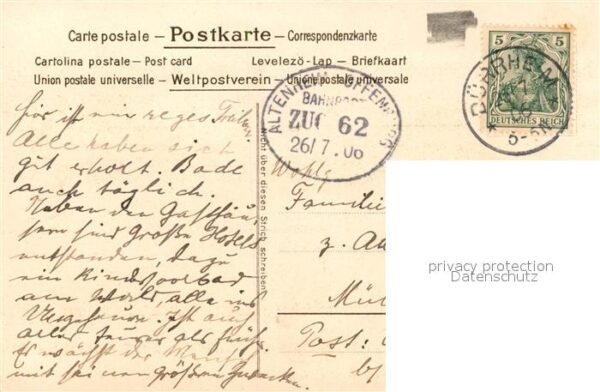 Carte postale – Postkarte – Correspondenzkarte
Cartolina postale – Post card Levelező-Lap – Briefkaart
Union postale universelle – Weltpostverein – Union postale universelle
5 5
DEUTSCHES REICH
DÜRRHEIM
5-6N
ALTENHEIM OFFENBURG
BAHNPOST
ZUG 62
26/7.06
Nicht über diesen Strich schreiben!
hier ist ein reges
Alle haben sich
gut erholt. Bade
auch täglich.
Neben den Gasthäu-
sern sind Große Hotels
entstanden, dazu
ein Kindersoolbad
am Wald, alle ins
Ungeheure. Ist auch
alles teurer als früher.
Er wächst der Mensch
mit seinen Größern Zwecken.
Wohlg
Familie
z. Au
Mül
Post:
privacy protection
Datenschutz